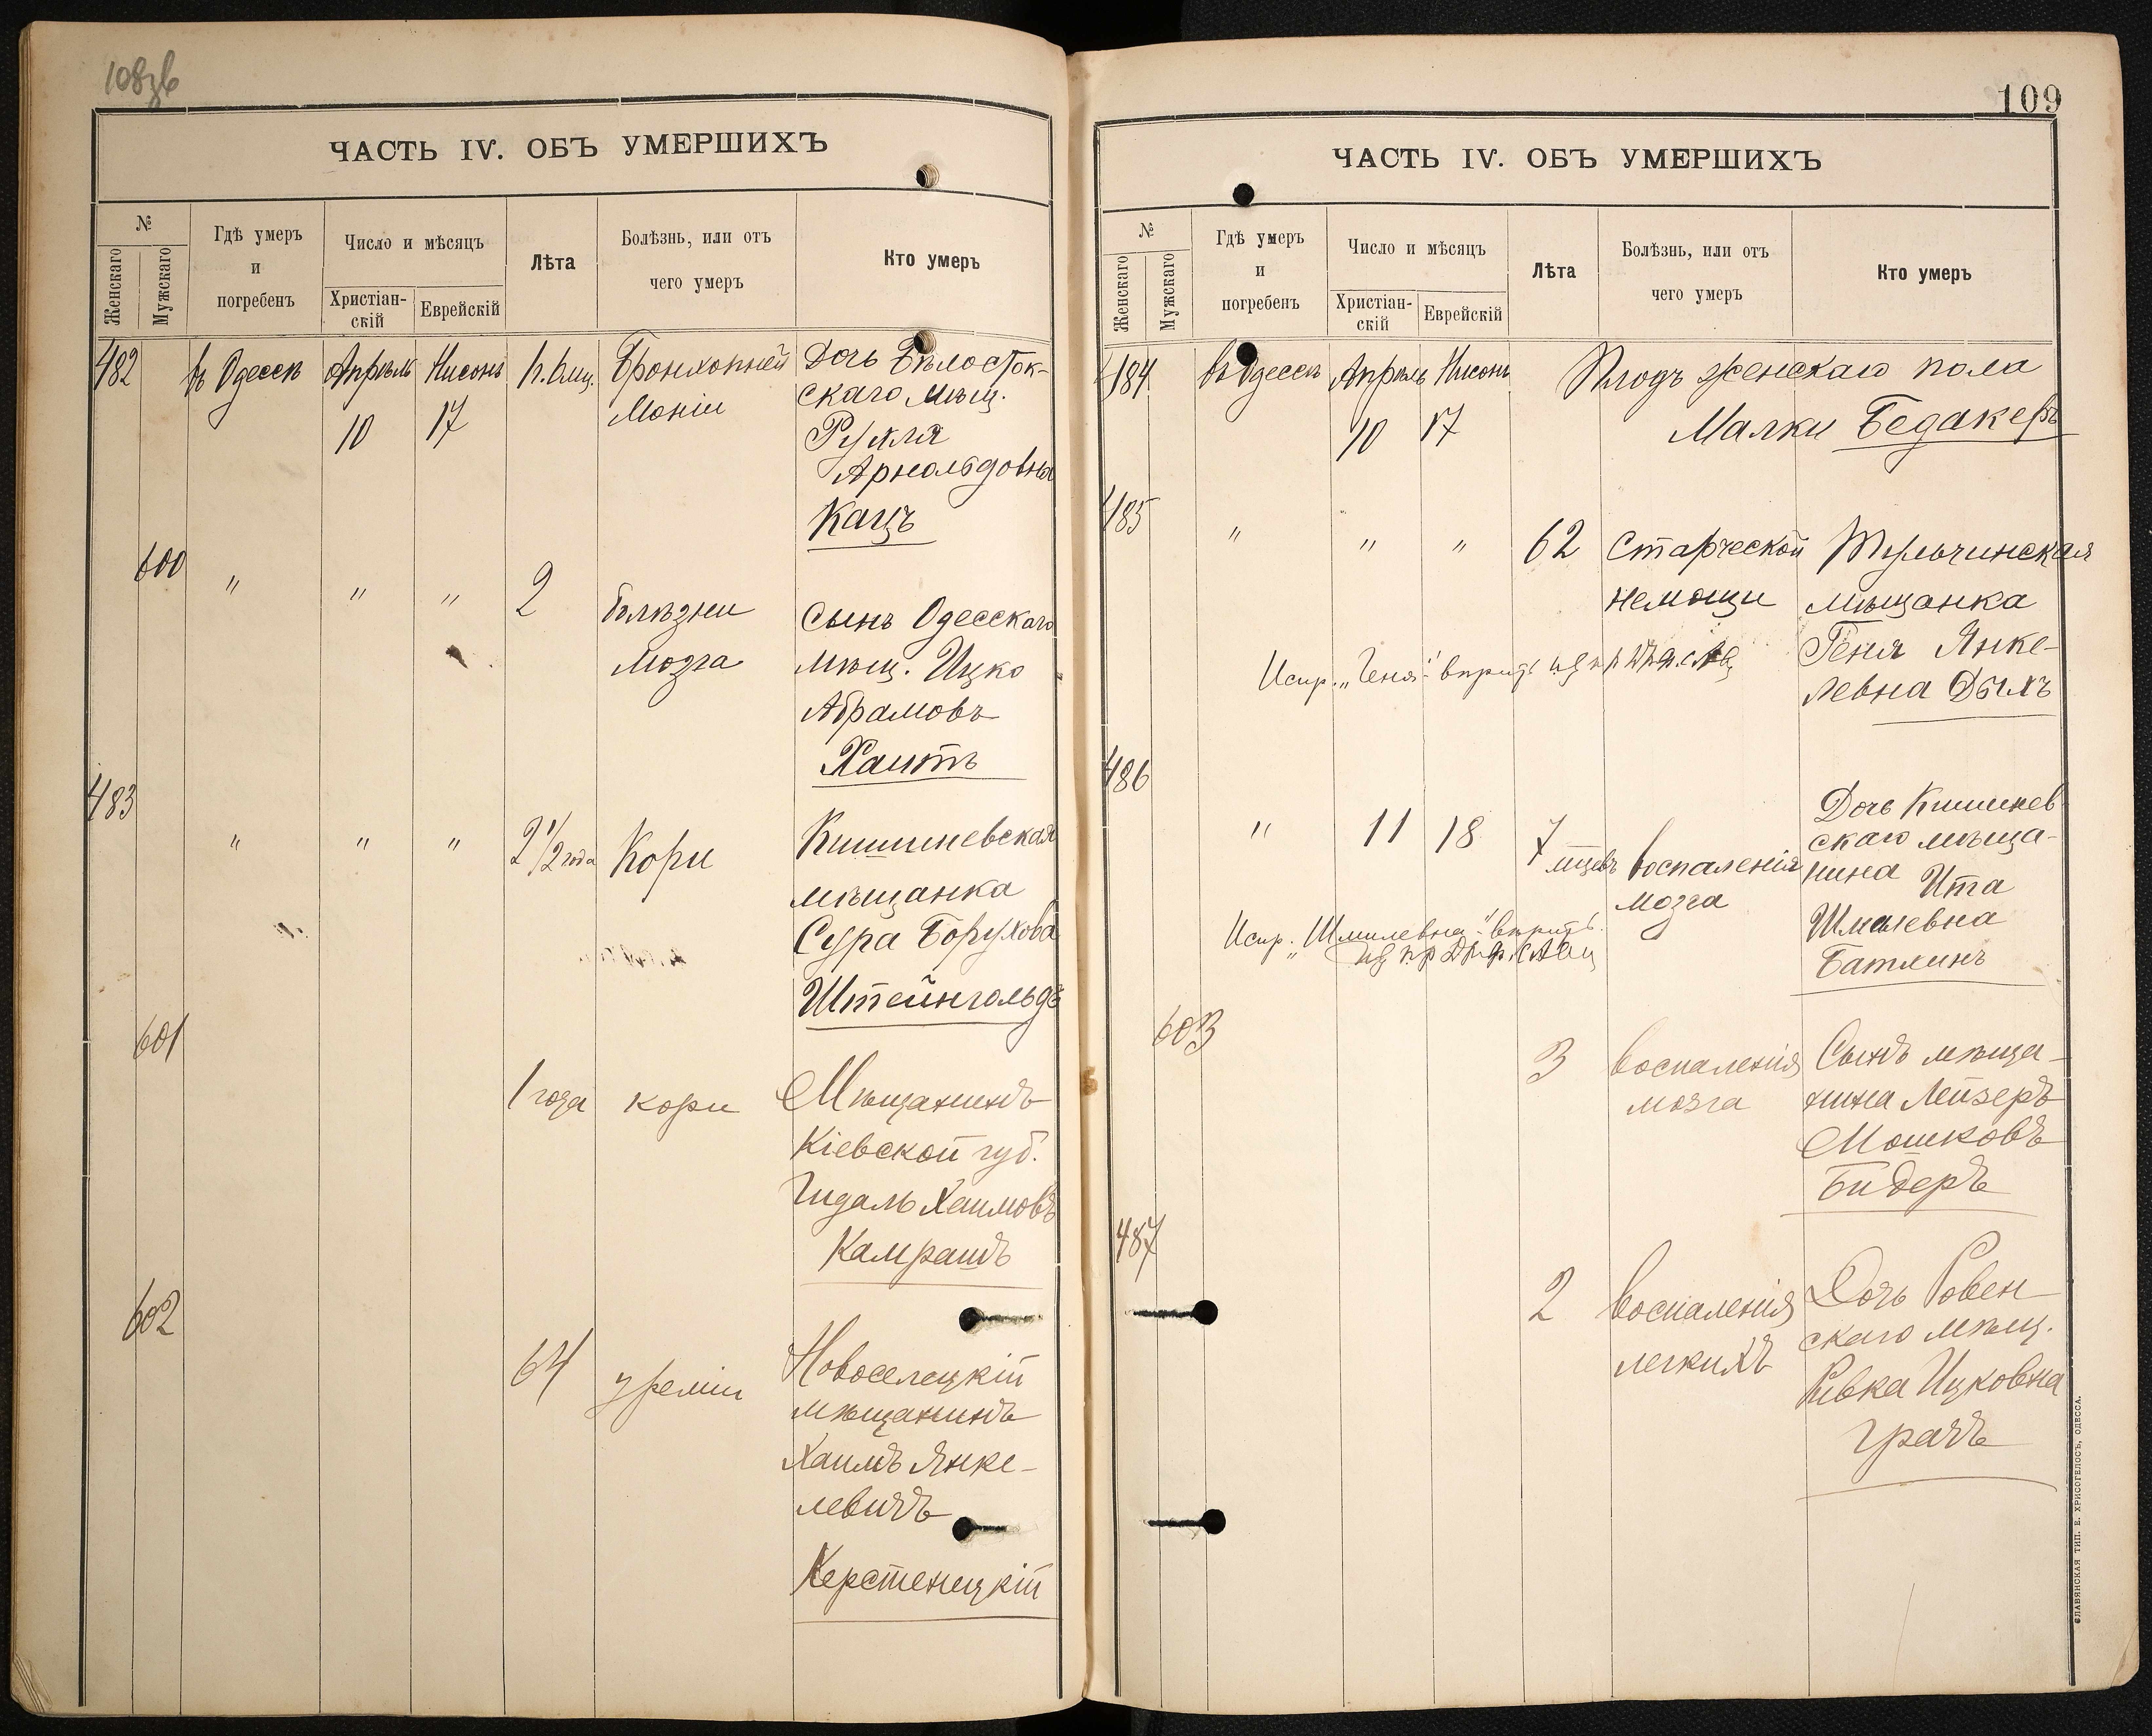 108
ЧАСТЬ IV. ОБЪ УМЕРШИХЪ
№
Женскаго
Мужскаго
Гдѣ умеръ
и
погребенъ
Число и мѣсяцъ
Христіан-
скій
Еврейскій
Лѣта
Болѣзнь, или отъ
чего умеръ
Кто умеръ
482
въ Одессѣ
Апрѣль
10
Нисонъ
17
Бронхопней
моніи
Дочь Бѣлосток-
скаго мѣщ.
Рухля
Арнольдовна
Кацъ
600
"
"
"
2
болѣзни
мозга
Сынъ Одесскаго
мѣщ. Ицко
Абрамовъ
Хаитъ
483
"
"
"
2 1/2 года
Кори
Кишиневская
мѣщанка
Сура Борухова
Штейнгольдъ
601
1 года
кори
Мѣщанинъ
Кіевской губ.
Гидаль Хаимовъ
Камрашъ
602
64
уреміи
Новоселецкій
мѣщанинъ
Хаимъ Янке-
левичъ
Керстенецкій
109
ЧАСТЬ IV. ОБЪ УМЕРШИХЪ
№
Женскаго
Мужскаго
Гдѣ умеръ
и
погребенъ
Число и мѣсяцъ
Христіан-
скій
Еврейскій
Лѣта
Болѣзнь, или отъ
чего умеръ
Кто умеръ
484
въ Одессѣ
Апрѣль
10
Нисонъ
17
Плодъ женскаго пола
Малки Бедакеръ
485
"
"
"
62
Старческой
немощи
Тульчинская
мѣщанка
Геня Янке-
левна Дыхъ
Испр. „Геня"
486
"
11
18
7 мцевъ
воспаленія
мозга
Дочь Кишинев
скаго мѣща-
нина Ита
Шмилевна
Батлинъ
Испр. „Шмилевна"
603
3
воспаленія
мозга
Сынъ мѣща-
нина Лейзеръ
Мошковъ
Бидеръ
487
2
воспаленія
легкихъ
Дочь Ровен
скаго мѣщ.
Ривка Ицковна
Грачъ
СЛАВЯНСКАЯ ТИП. Е. ХРИСОГЕЛОСЪ, ОДЕССА.